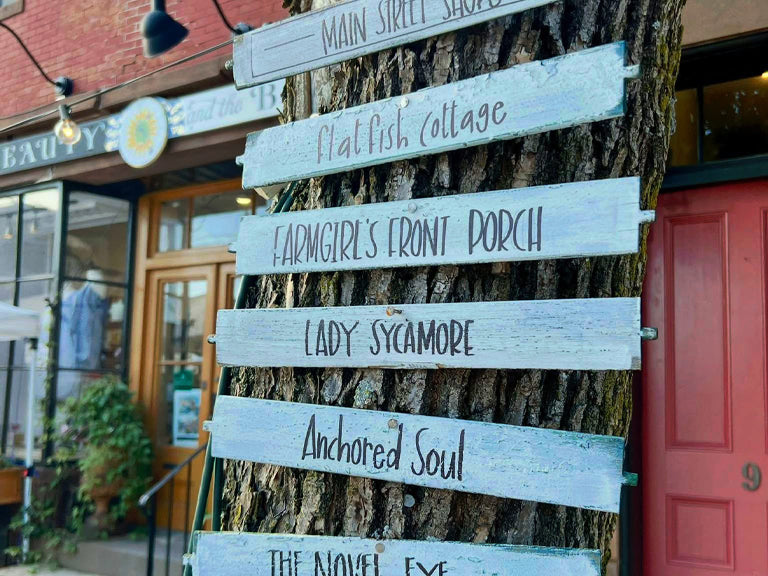 MAIN STREET SHOPS
flatfish Cottage
FARMGIRL'S FRONT PORCH
LADY SYCAMORE
Anchored Soul
THE NOVEL EYE
BEAUTY
and the B
9